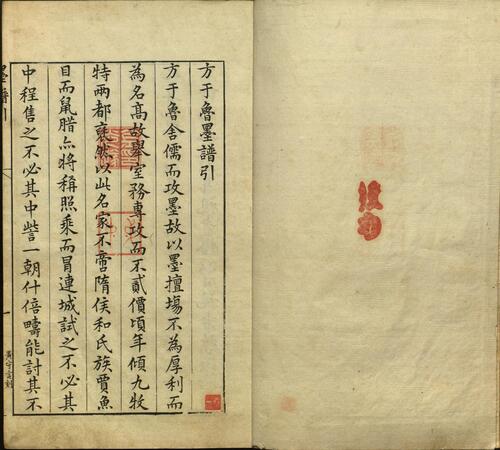 方于魯墨譜引
方于魯舍儒而攻墨故以墨擅場不為厚利而
為名高故舉室務專攻而不貳價頃年傾九牧
特兩都褎然以此名家不啻隋侯和氏族賈魚
目而鼠腊亦將稱照乘而冒連城試之不必其
中程售之不必其中訾一朝什倍疇能討其不
墨譜引
一